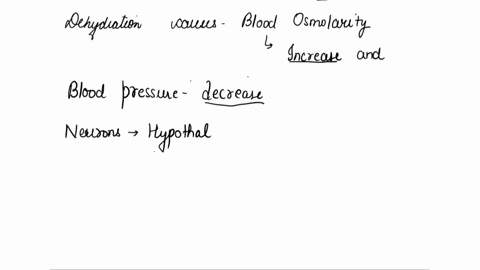 Dehydration causes - Blood Osmolarity
↳ Increase and
Blood pressure - decrease
Neurons → Hypothal